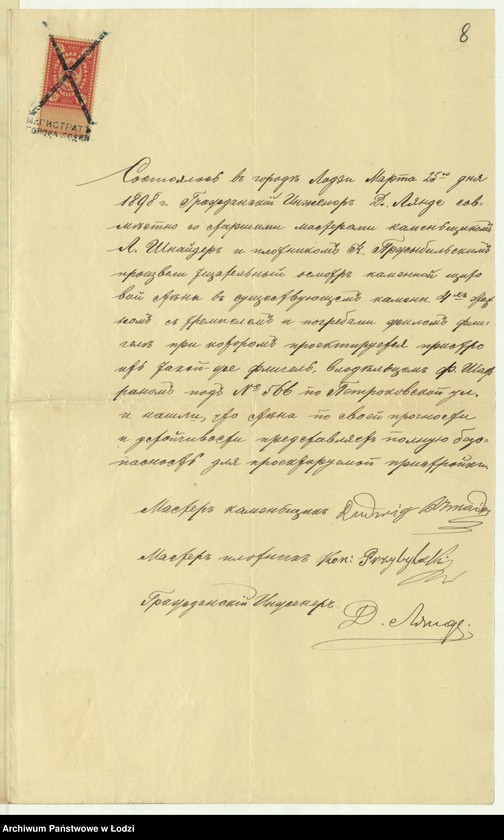 8
МАГИСТРАТЪ
ГОРОДА ЛОДЗИ
Состоялось въ городѣ Лодзи Марта 25го дня
1898 г. Гражданскій Инженеръ Д. Лянде сов-
мѣстно со старшими мастерами каменьщикомъ
Л. Шнайдеръ и плотникомъ К. Пршибыльскимъ
произвели тщательный осмотръ каменной щито
вой стѣны въ существующемъ каменн. 4хъ этаж
номъ съ тремпелемъ и погребами жиломъ фли-
гелѣ при которомъ проектируется пристро
ить такой-же флигель, владѣльцомъ Ф. Шаф
раномъ подъ № 566 по Петроковской ул.
и нашли, что стѣна по своей прочности
и устойчивости представляетъ полную безо-
пасность для проектируемой пристройки.
Мастеръ каменьщикъ Ludwig
Мастеръ плотникъ Kon: Przybylski
Гражданскій Инженеръ
Д. Лянде.
Archiwum Państwowe w Łodzi